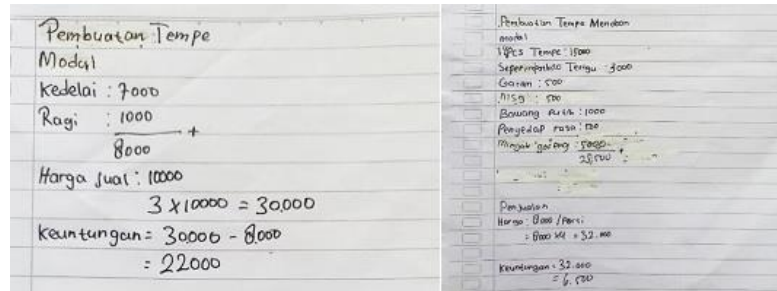 Pembuatan Tempe
Modal
Kedelai : 7000
Ragi : 1000
+
8000
Harga Jual : 10000
3 x 10000 = 30.000
Keuntungan = 30.000 - 8.000
= 22000
Pembuatan Tempe Mendoan
modal
Tempe : 15000
Terigu : 3000
Garam : 500
: 500
Bawang Putih : 1000
Penyedap rasa : 500
goreng : 5000
+
Penjualan
Harga : 8000 /Porsi
= 8000 x 4 = 32.000
Keuntungan = 32.000
= 6.500